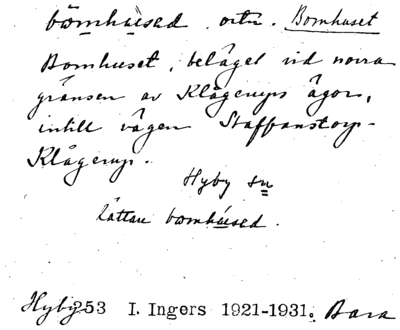 bömhused ortn. Bomhuset
Bomhuset, beläget vid norra
gränsen av Klågerups ägor,
intill vägen Staffanstorp-
Klågerup.
Hyby sn
bömhused.
Hyby 253 I. Ingers 1921-1931. Bara